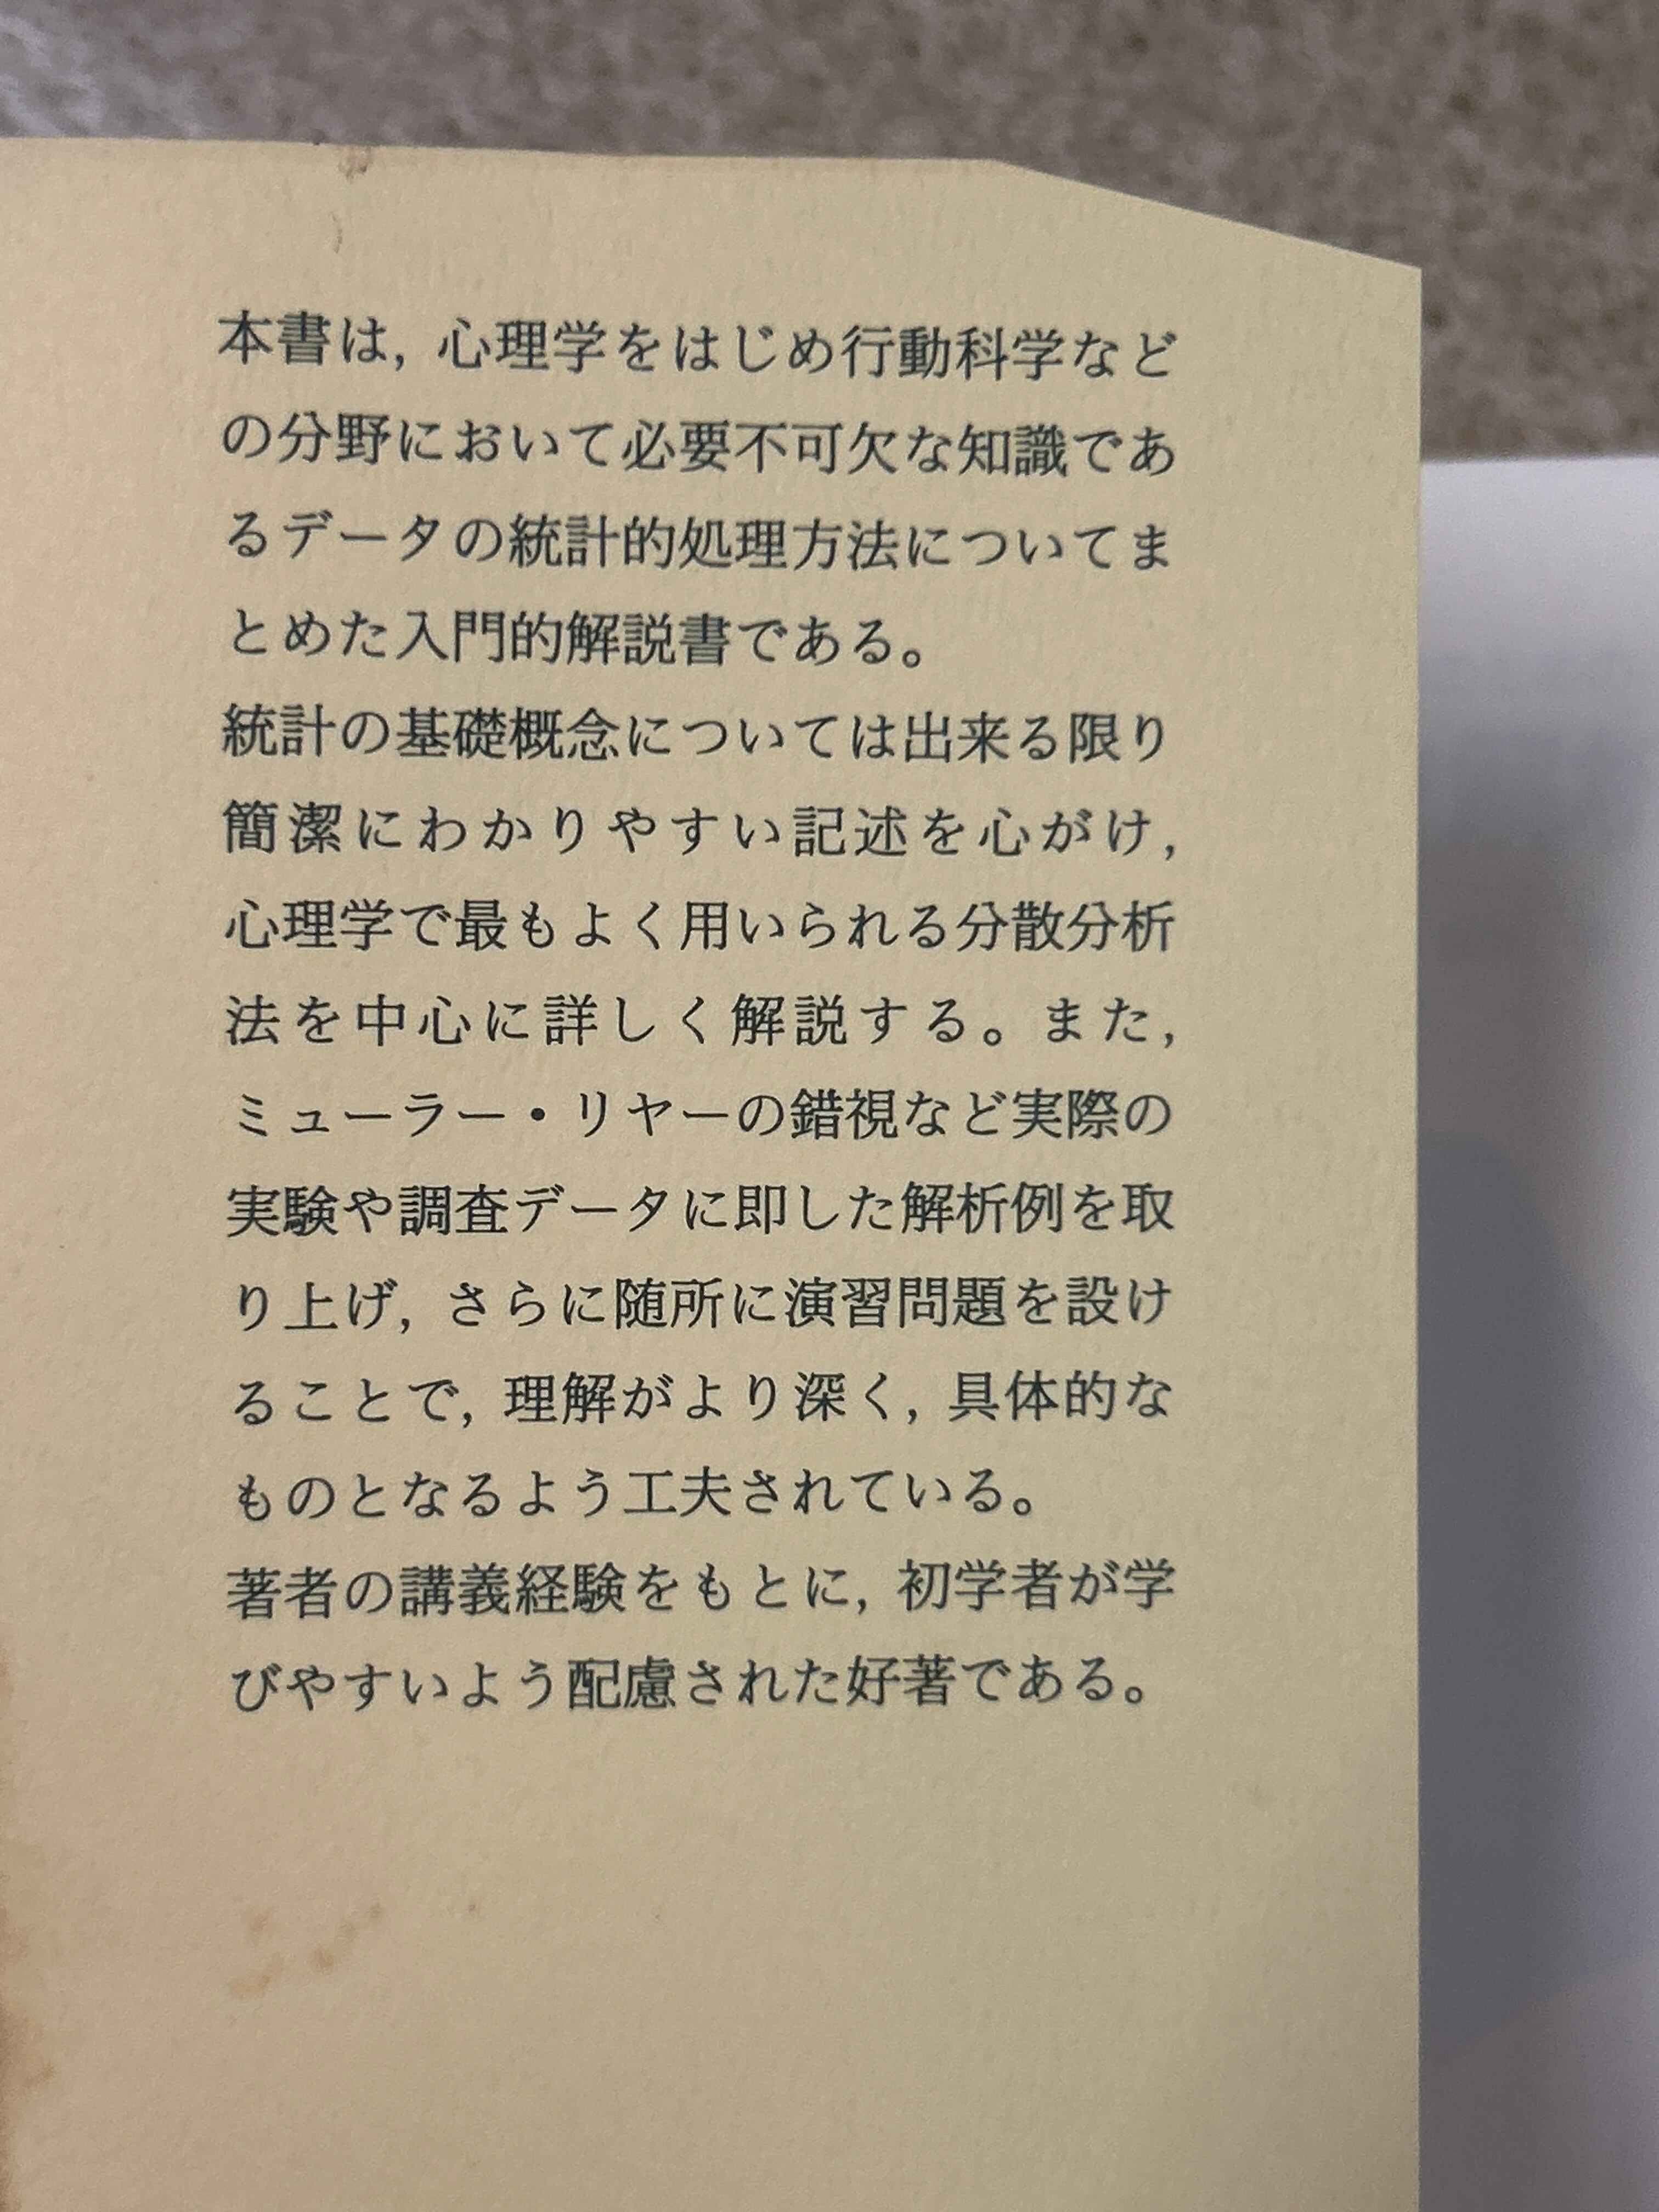 本書は, 心理学をはじめ行動科学など
の分野において必要不可欠な知識であ
るデータの統計的処理方法についてま
とめた入門的解説書である。
統計の基礎概念については出来る限り
簡潔にわかりやすい記述を心がけ,
心理学で最もよく用いられる分散分析
法を中心に詳しく解説する。また,
ミューラー・リヤーの錯視など実際の
実験や調査データに即した解析例を取
り上げ, さらに随所に演習問題を設け
ることで, 理解がより深く, 具体的な
ものとなるよう工夫されている。
著者の講義経験をもとに, 初学者が学
びやすいよう配慮された好著である。